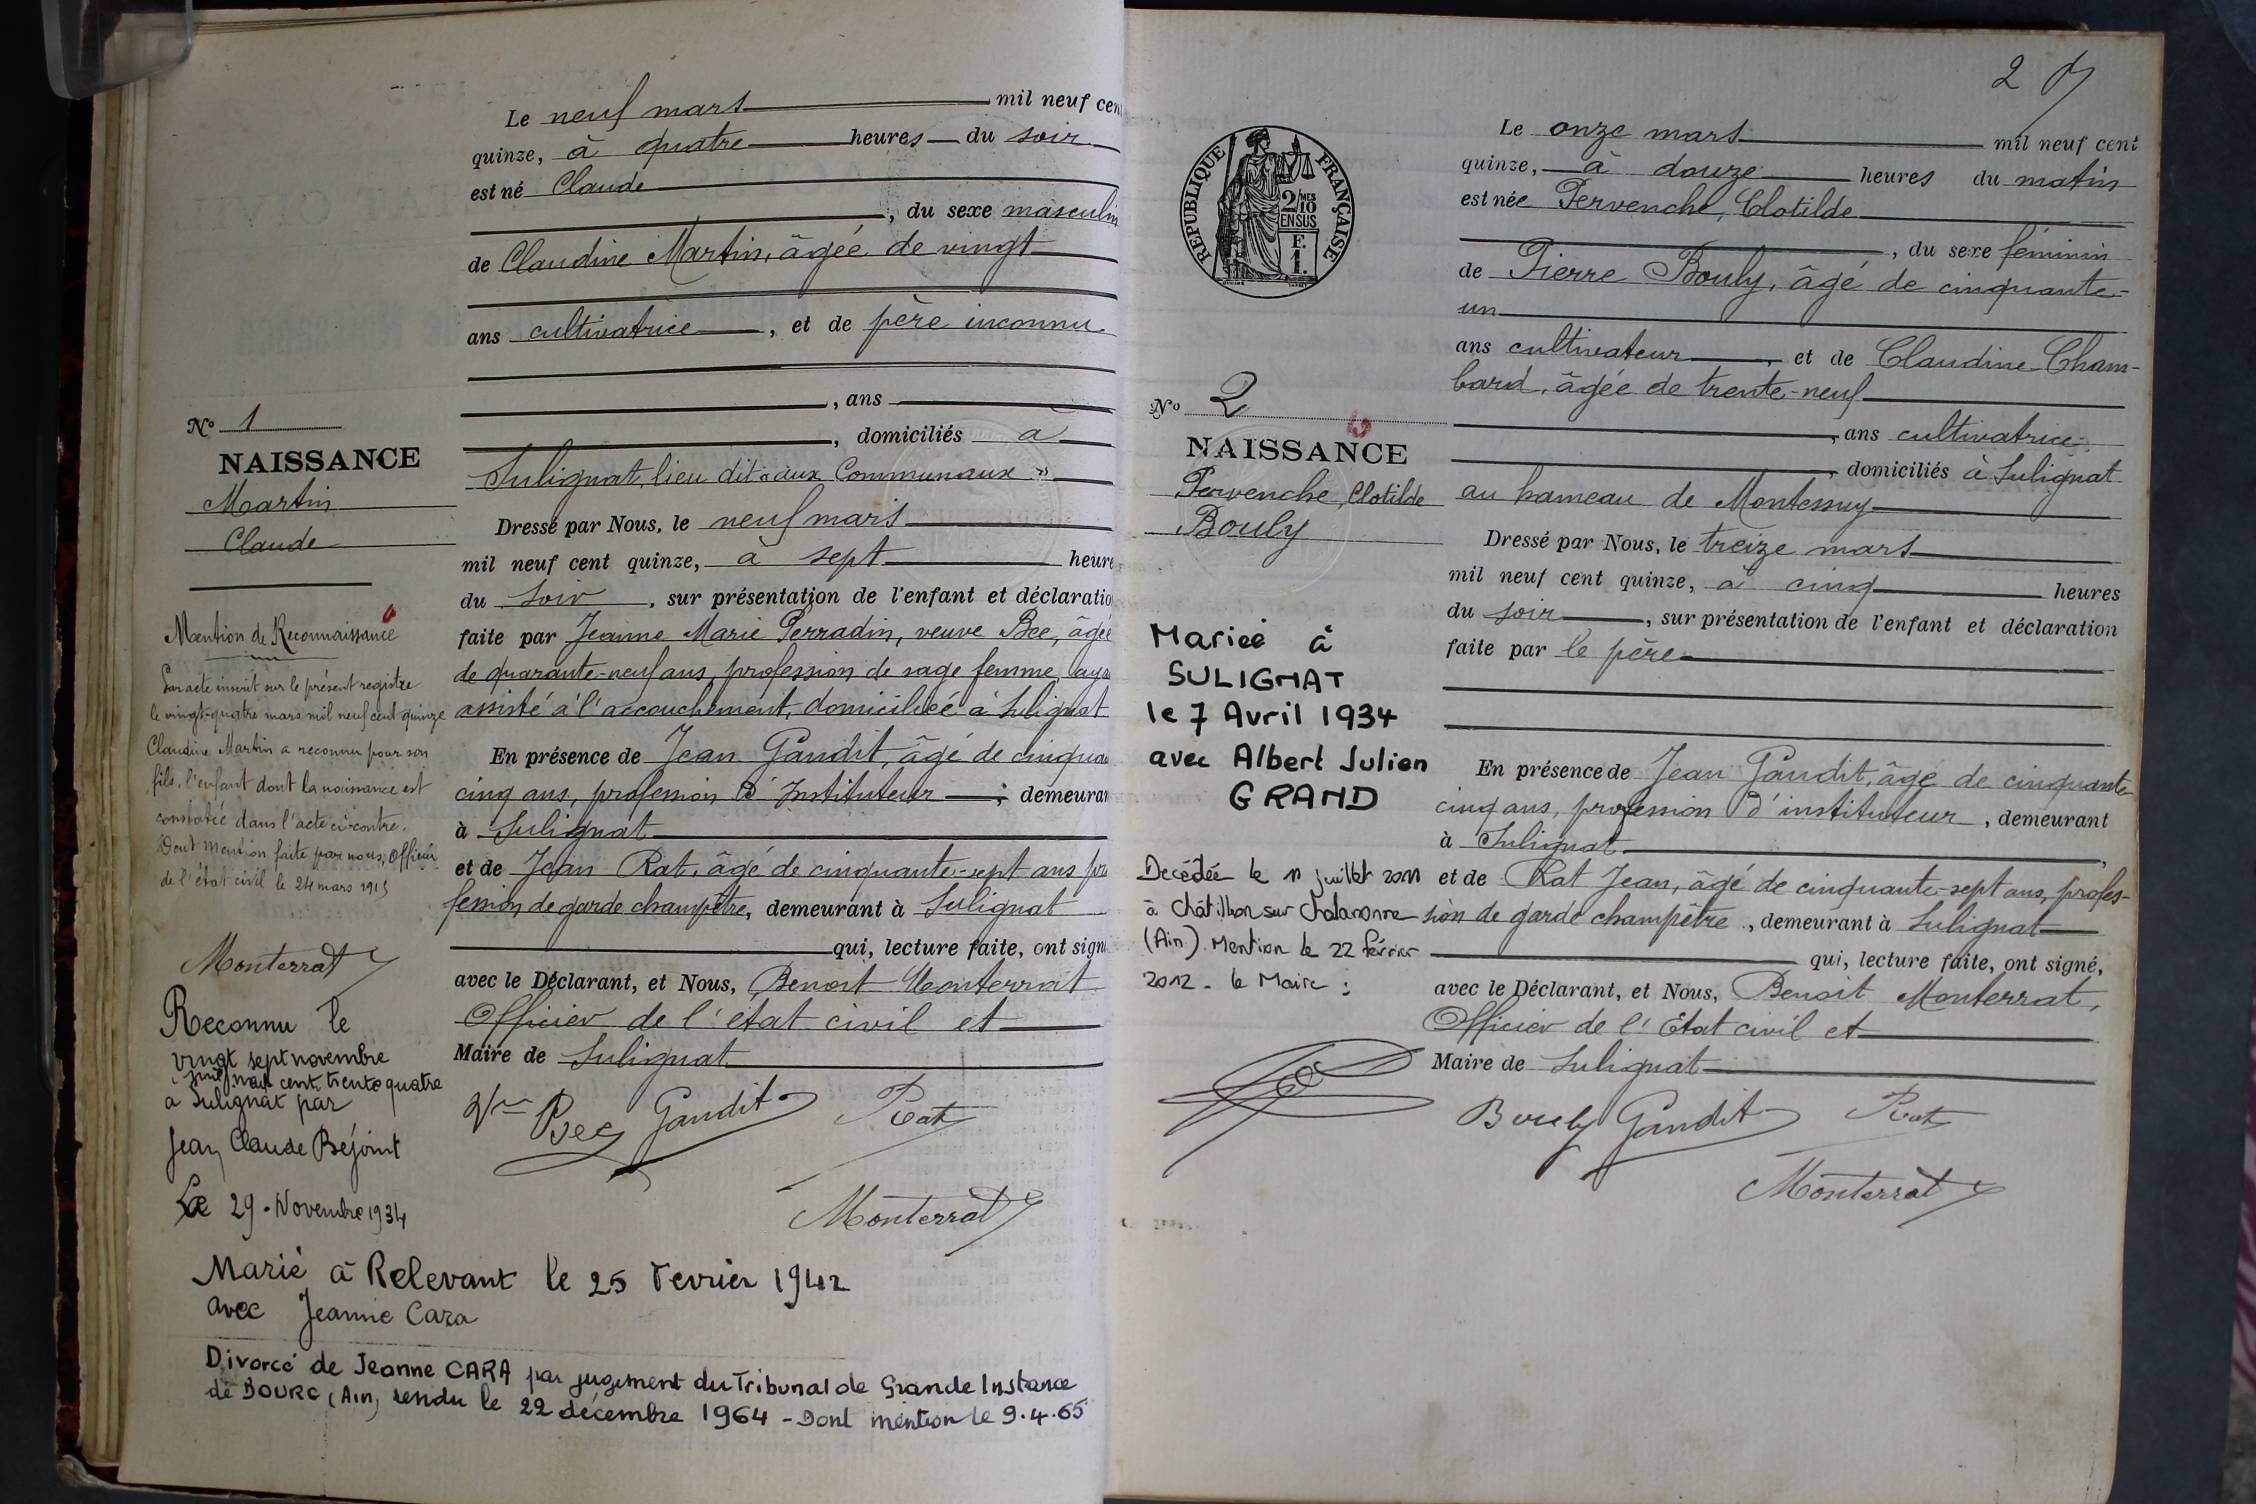 Le neuf mars mil neuf cen
quinze, à quatre heures du soir
est né Claude
, du sexe masculin
de Claudine Martin, âgée de vingt
ans cultivatrice, et de père inconnu
, ans
, domiciliés à
Sulignat, lieu dit « aux Communaux »
Dressé par Nous, le neuf mars
mil neuf cent quinze, à sept heure
du soir, sur présentation de l'enfant et déclaratio
faite par Jeanne Marie Perradin, veuve Bec, âgée
de quarante-neuf ans, profession de sage femme, aya
assisté à l'accouchement, domiciliée à Sulignat
En présence de Jean Gaudit, âgé de cinqua
cinq ans, profession d'Instituteur ; demeuran
à Sulignat
et de Jean Rat, âgé de cinquante-sept ans pro
fession de garde champêtre, demeurant à Sulignat
qui, lecture faite, ont sign
avec le Déclarant, et Nous, Benoit Monterrat
Officier de l'état civil et
Maire de Sulignat
Bec Gaudit Rat
Monterrat
No 1
NAISSANCE
Martin
Claude
Mention de Reconnaissance
Par acte inscrit sur le présent registre
le vingt-quatre mars mil neuf cent quinze
Claudine Martin a reconnu pour son
fils, l'enfant dont la naissance est
constatée dans l'acte ci-contre.
Dont mention faite par nous, Officier
de l'état civil le 24 mars 1915
Monterrat
Reconnu le
vingt sept novembre
mil neuf cent trente quatre
à Sulignat par
Jean Claude Béjoint
Le 29 Novembre 1934
Marié à Relevant le 25 Fevrier 1942
avec Jeanne Cara
Divorcé de Jeanne CARA par jugement du Tribunal de Grande Instance
de BOURG (Ain) rendu le 22 décembre 1964 - Dont mention le 9.4.65
2
REPUBLIQUE FRANÇAISE
2/10 MES
EN SUS
F.
1.
Le onze mars mil neuf cent
quinze, à douze heures du matin
est née Pervenche, Clotilde
, du sexe féminin
de Pierre Bouly, âgé de cinquante-
un
ans cultivateur, et de Claudine Cham-
bard, âgée de trente-neuf
, ans cultivatrice
, domiciliés à Sulignat
au hameau de Montessuy
Dressé par Nous, le treize mars
mil neuf cent quinze, à cinq heures
du soir, sur présentation de l'enfant et déclaration
faite par le père
En présence de Jean Gaudit, âgé de cinquante-
cinq ans, profession d'instituteur, demeurant
à Sulignat,
et de Rat Jean, âgé de cinquante-sept ans, profes-
sion de garde champêtre, demeurant à Sulignat
qui, lecture faite, ont signé,
avec le Déclarant, et Nous, Benoit Monterrat,
Officier de l'Etat civil et
Maire de Sulignat
Bouly Gaudit Rat
Monterrat
No 2
NAISSANCE
Pervenche, Clotilde
Bouly
Mariée à
SULIGNAT
le 7 Avril 1934
avec Albert Julien
GRAND
Decédée le 11 juillet 2011
à Châtillon sur Chalaronne
(Ain). Mention le 22 février
2012 - le Maire :